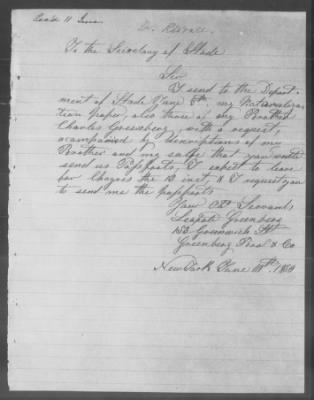 To the Secretary of State
Sir
I send to the Depart-
ment of State June 8th, my Naturaliza-
tion paper, also those of my Brother
Charles Greenberg, with a request,
acompained by descriptions of my
Brother and my salfe that you would
send us Passports. I expect to leave
the 13 inst. & I request you
to send me the passports
Your Obt Servant,
Leopold Greenberg
153 Greenwich St
Greenberg & Co
New York June 11th